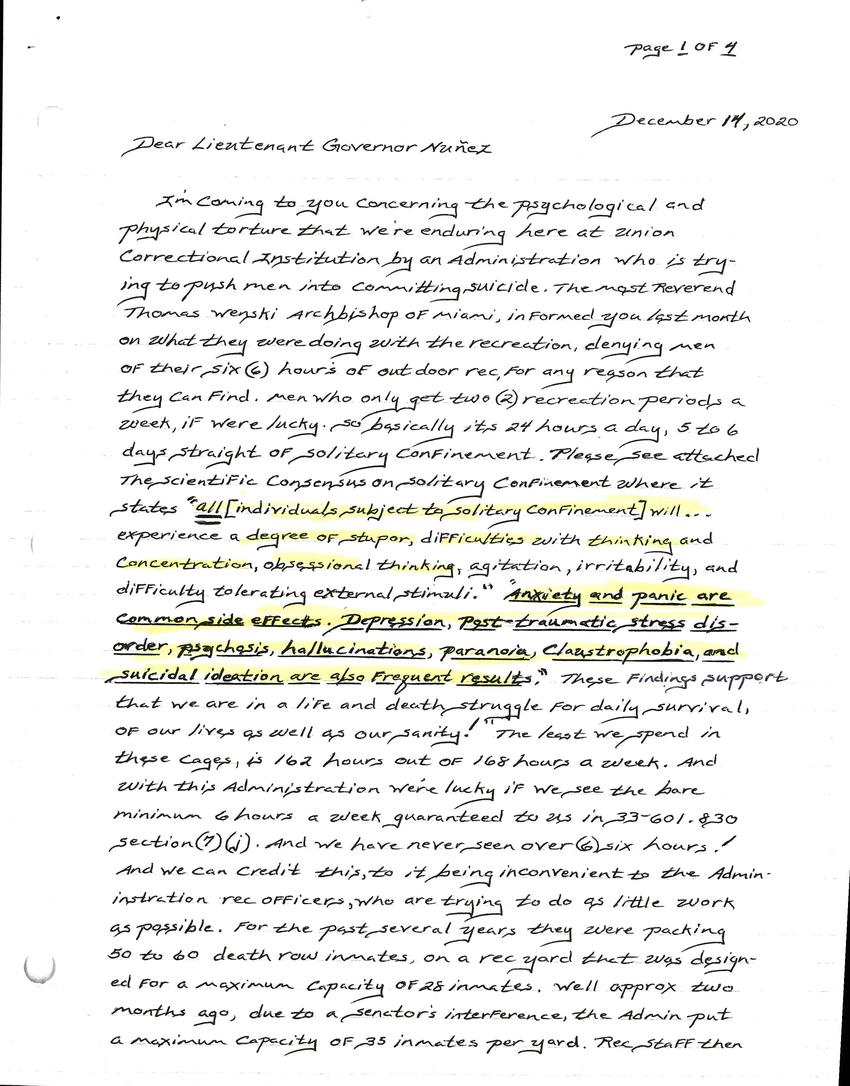 page 1 OF 4
December 14, 2020
Dear Lieutenant Governor Nuñez
I'm Coming to you concerning the psychological and
physical torture that we're enduring here at Union
Correctional Institution by an Administration who is try-
ing to push men into committing suicide. The most Reverend
Thomas Wenski Archbishop of Miami, informed you last month
on what they were doing with the recreation, denying men
of their six (6) hours of out door rec, for any reason that
they can find. Men who only get two (2) recreation periods a
week, if were lucky. So basically its 24 hours a day, 5 to 6
days straight of solitary confinement. Please see attached
The scientific Consensus on solitary confinement where it
states "all [individuals subject to solitary confinement] will...
experience a degree of stupor, difficulties with thinking and
Concentration, obsessional thinking, agitation, irritability, and
difficulty tolerating external stimuli." "Anxiety and panic are
common side effects. Depression, Post-traumatic stress dis-
order, psychosis, hallucinations, paranoia, Claustrophobia, and
suicidal ideation are also frequent results." These findings support
that we are in a life and death struggle for daily survival,
of our lives as well as our sanity!" The least we spend in
these cages, is 162 hours out of 168 hours a week. And
with this Administration we're lucky if we see the bare
minimum 6 hours a week guaranteed to us in 33-601.830
section (7)(j). And we have never seen over (6) six hours!
And we can credit this, to it being inconvenient to the Admin-
instration rec officers, who are trying to do as little work
as possible. For the past several years they were packing
50 to 60 death row inmates, on a rec yard that was design-
ed for a maximum capacity of 28 inmates. Well approx two
months ago, due to a senator's interference, the Admin put
a maximum capacity of 35 inmates per yard. Rec staff then